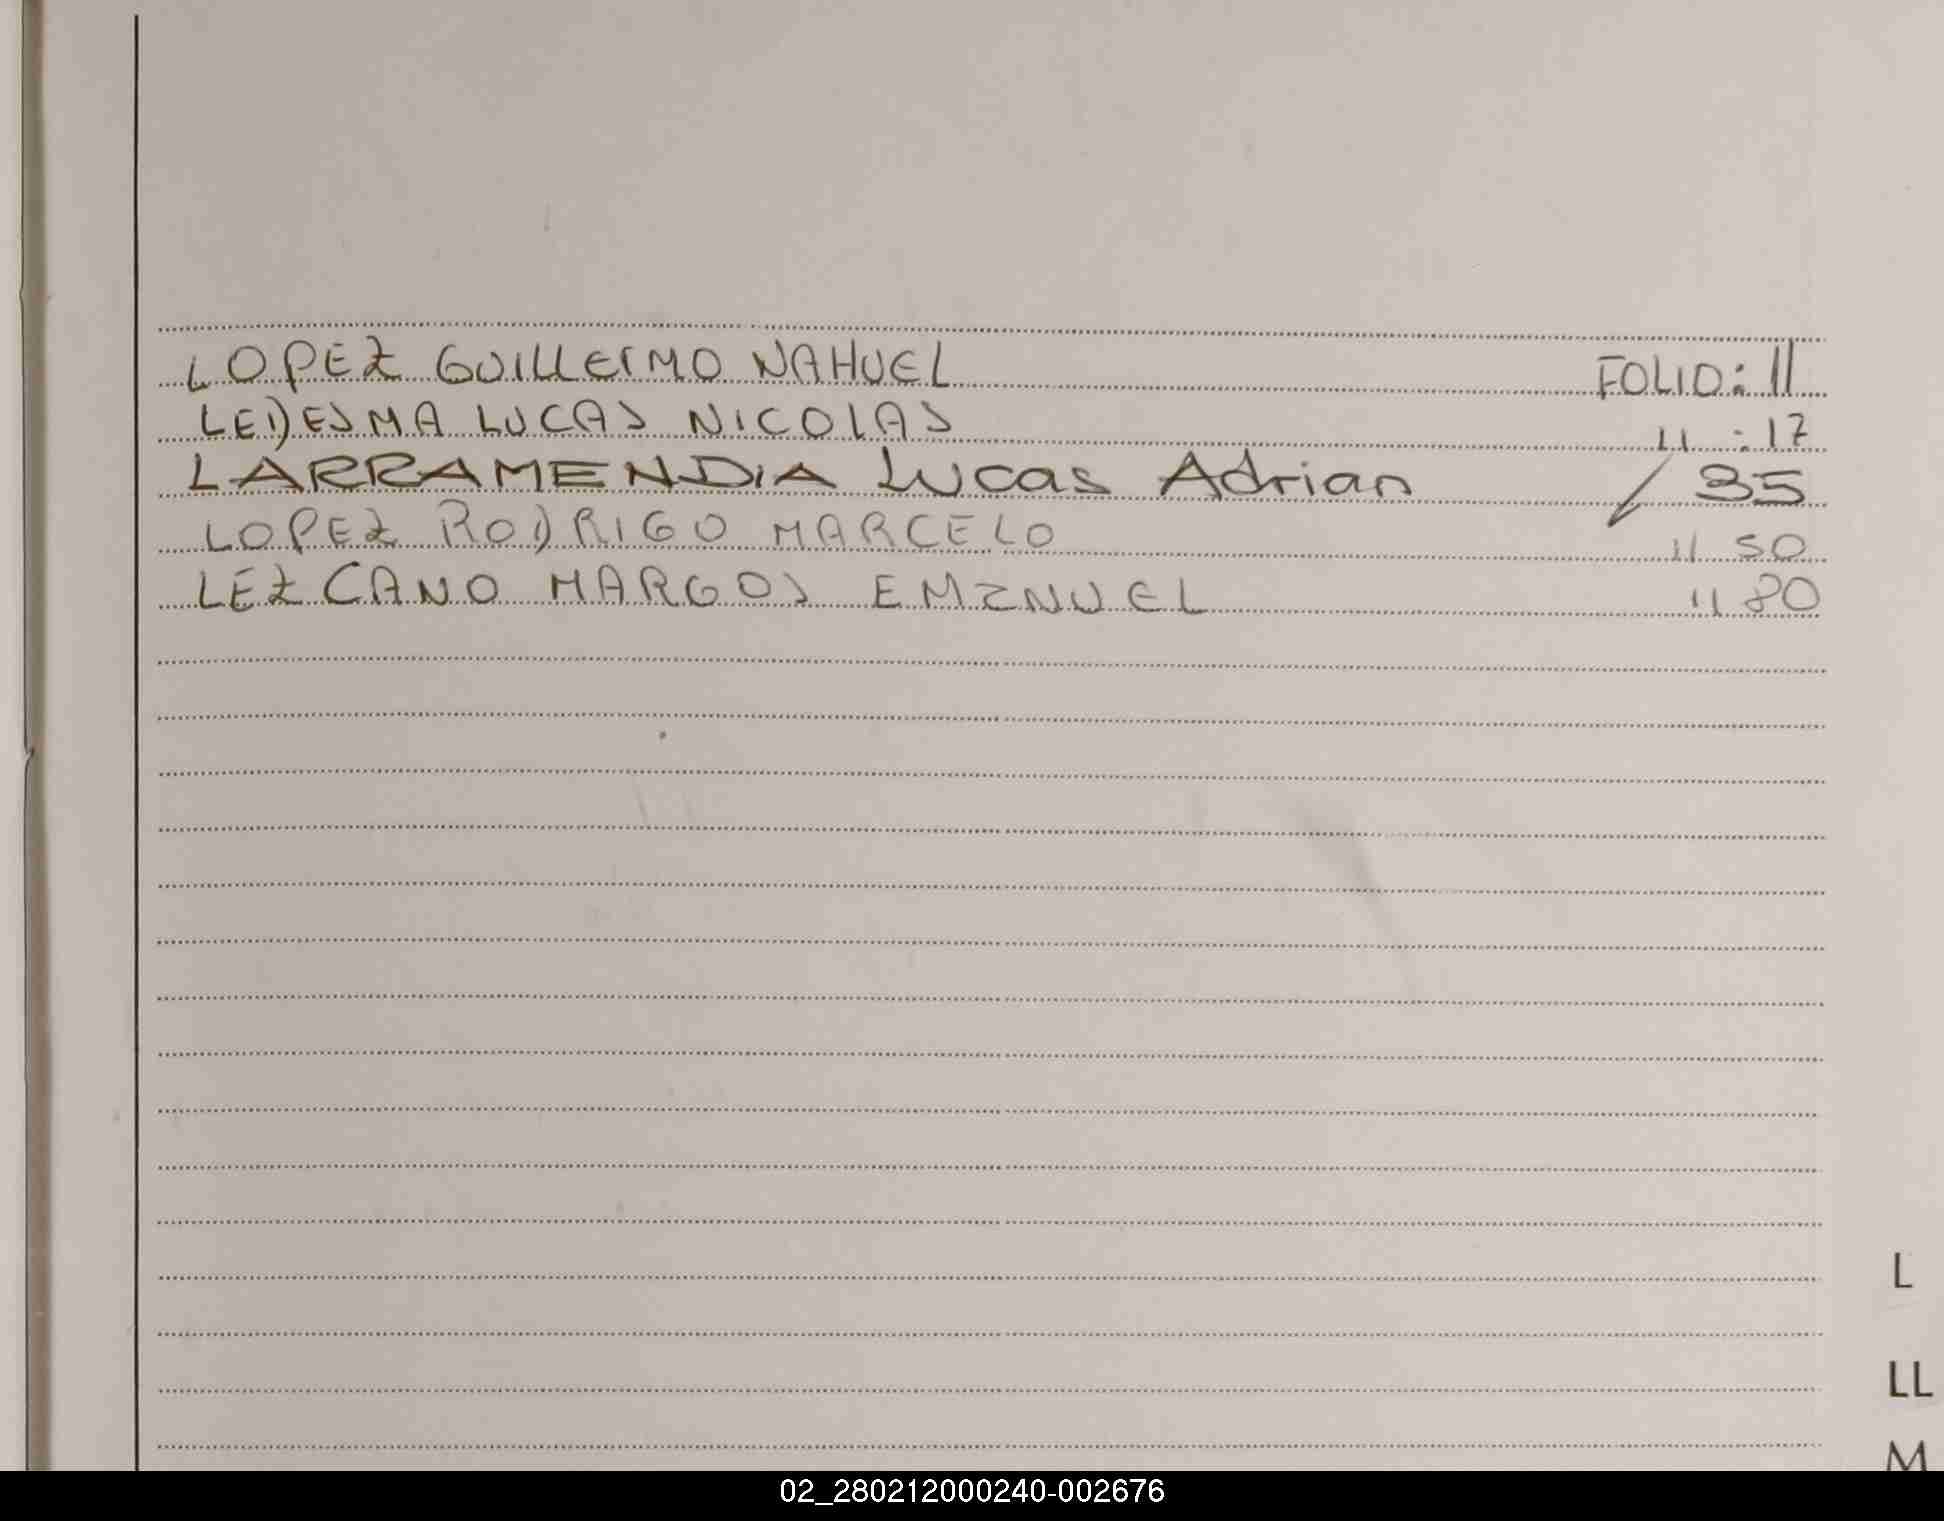 LOPEZ GUILLERMO NAHUEL FOLIO: 11
LEDESMA LUCAS NICOLAS 11 : 17
LARRAMENDIA Lucas Adrian / 35
LOPEZ RODRIGO MARCELO 11 50
LEZCANO MARGOS EMZNUEL 11 80
L
LL
M
02_280212000240-002676